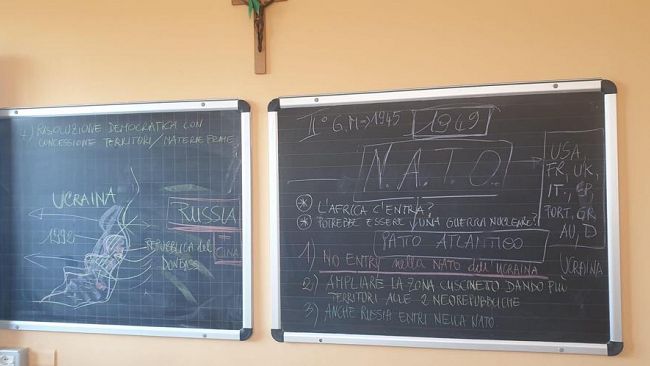 RISOLUZIONE DEMOCRATICA CON
CONCESSIONE TERRITORI/MATERIE PRIME
UCRAINA
RUSSIA
CINA
REPUBBLICA del
DONBASS
II° G.M → 1945
1949
N.A.T.O.
USA,
FR, UK,
IT., SP,
PORT, GR
AU, D
UCRAINA
* L'AFRICA C'ENTRA?
* POTREBBE ESSERE UNA GUERRA NUCLEARE?
PATTO ATLANTICO
1) NO ENTRY nella NATO dell'UCRAINA
2) AMPLIARE LA ZONA CUSCINETTO DANDO PIÙ
TERRITORI ALLE 2 NEOREPUBBLICHE
3) ANCHE RUSSIA ENTRI NELLA NATO